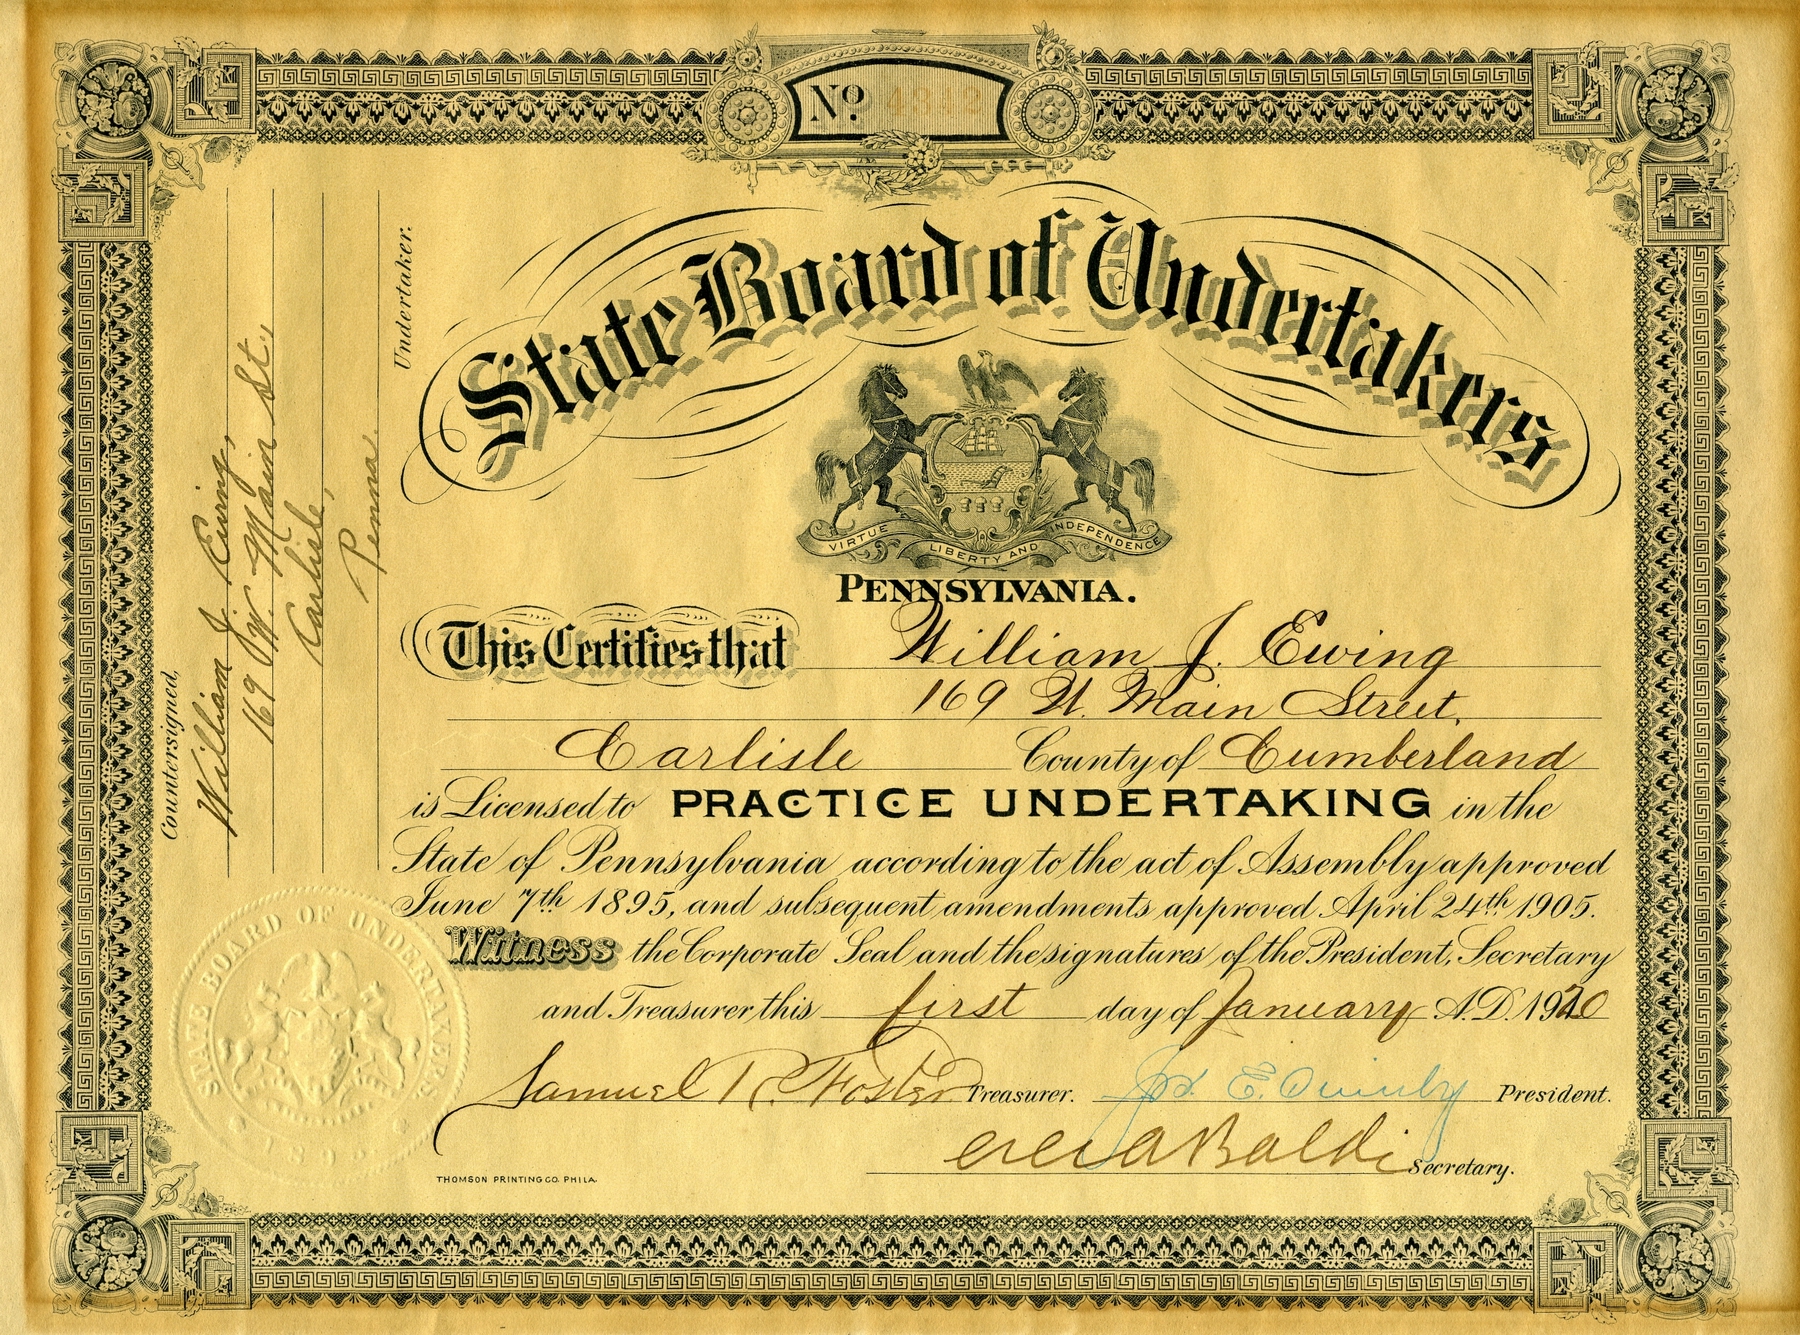 No. 1342
State Board of Undertakers
VIRTUE LIBERTY AND INDEPENDENCE
PENNSYLVANIA.
This Certifies that William J. Ewing
169 W. Main Street,
Carlisle County of Cumberland
is Licensed to PRACTICE UNDERTAKING in the
State of Pennsylvania according to the act of Assembly approved
June 7th 1895, and subsequent amendments approved April 24th 1905.
Witness the Corporate Seal and the signatures of the President, Secretary
and Treasurer, this first day of January A.D. 1920
Samuel R. Foster Treasurer. E. Quimby President.
Baldi Secretary.
THOMSON PRINTING CO. PHILA.
Countersigned,
William J. Ewing,
169 W. Main St.,
Carlisle,
Penna.
Undertaker.
STATE BOARD OF UNDERTAKERS
1895